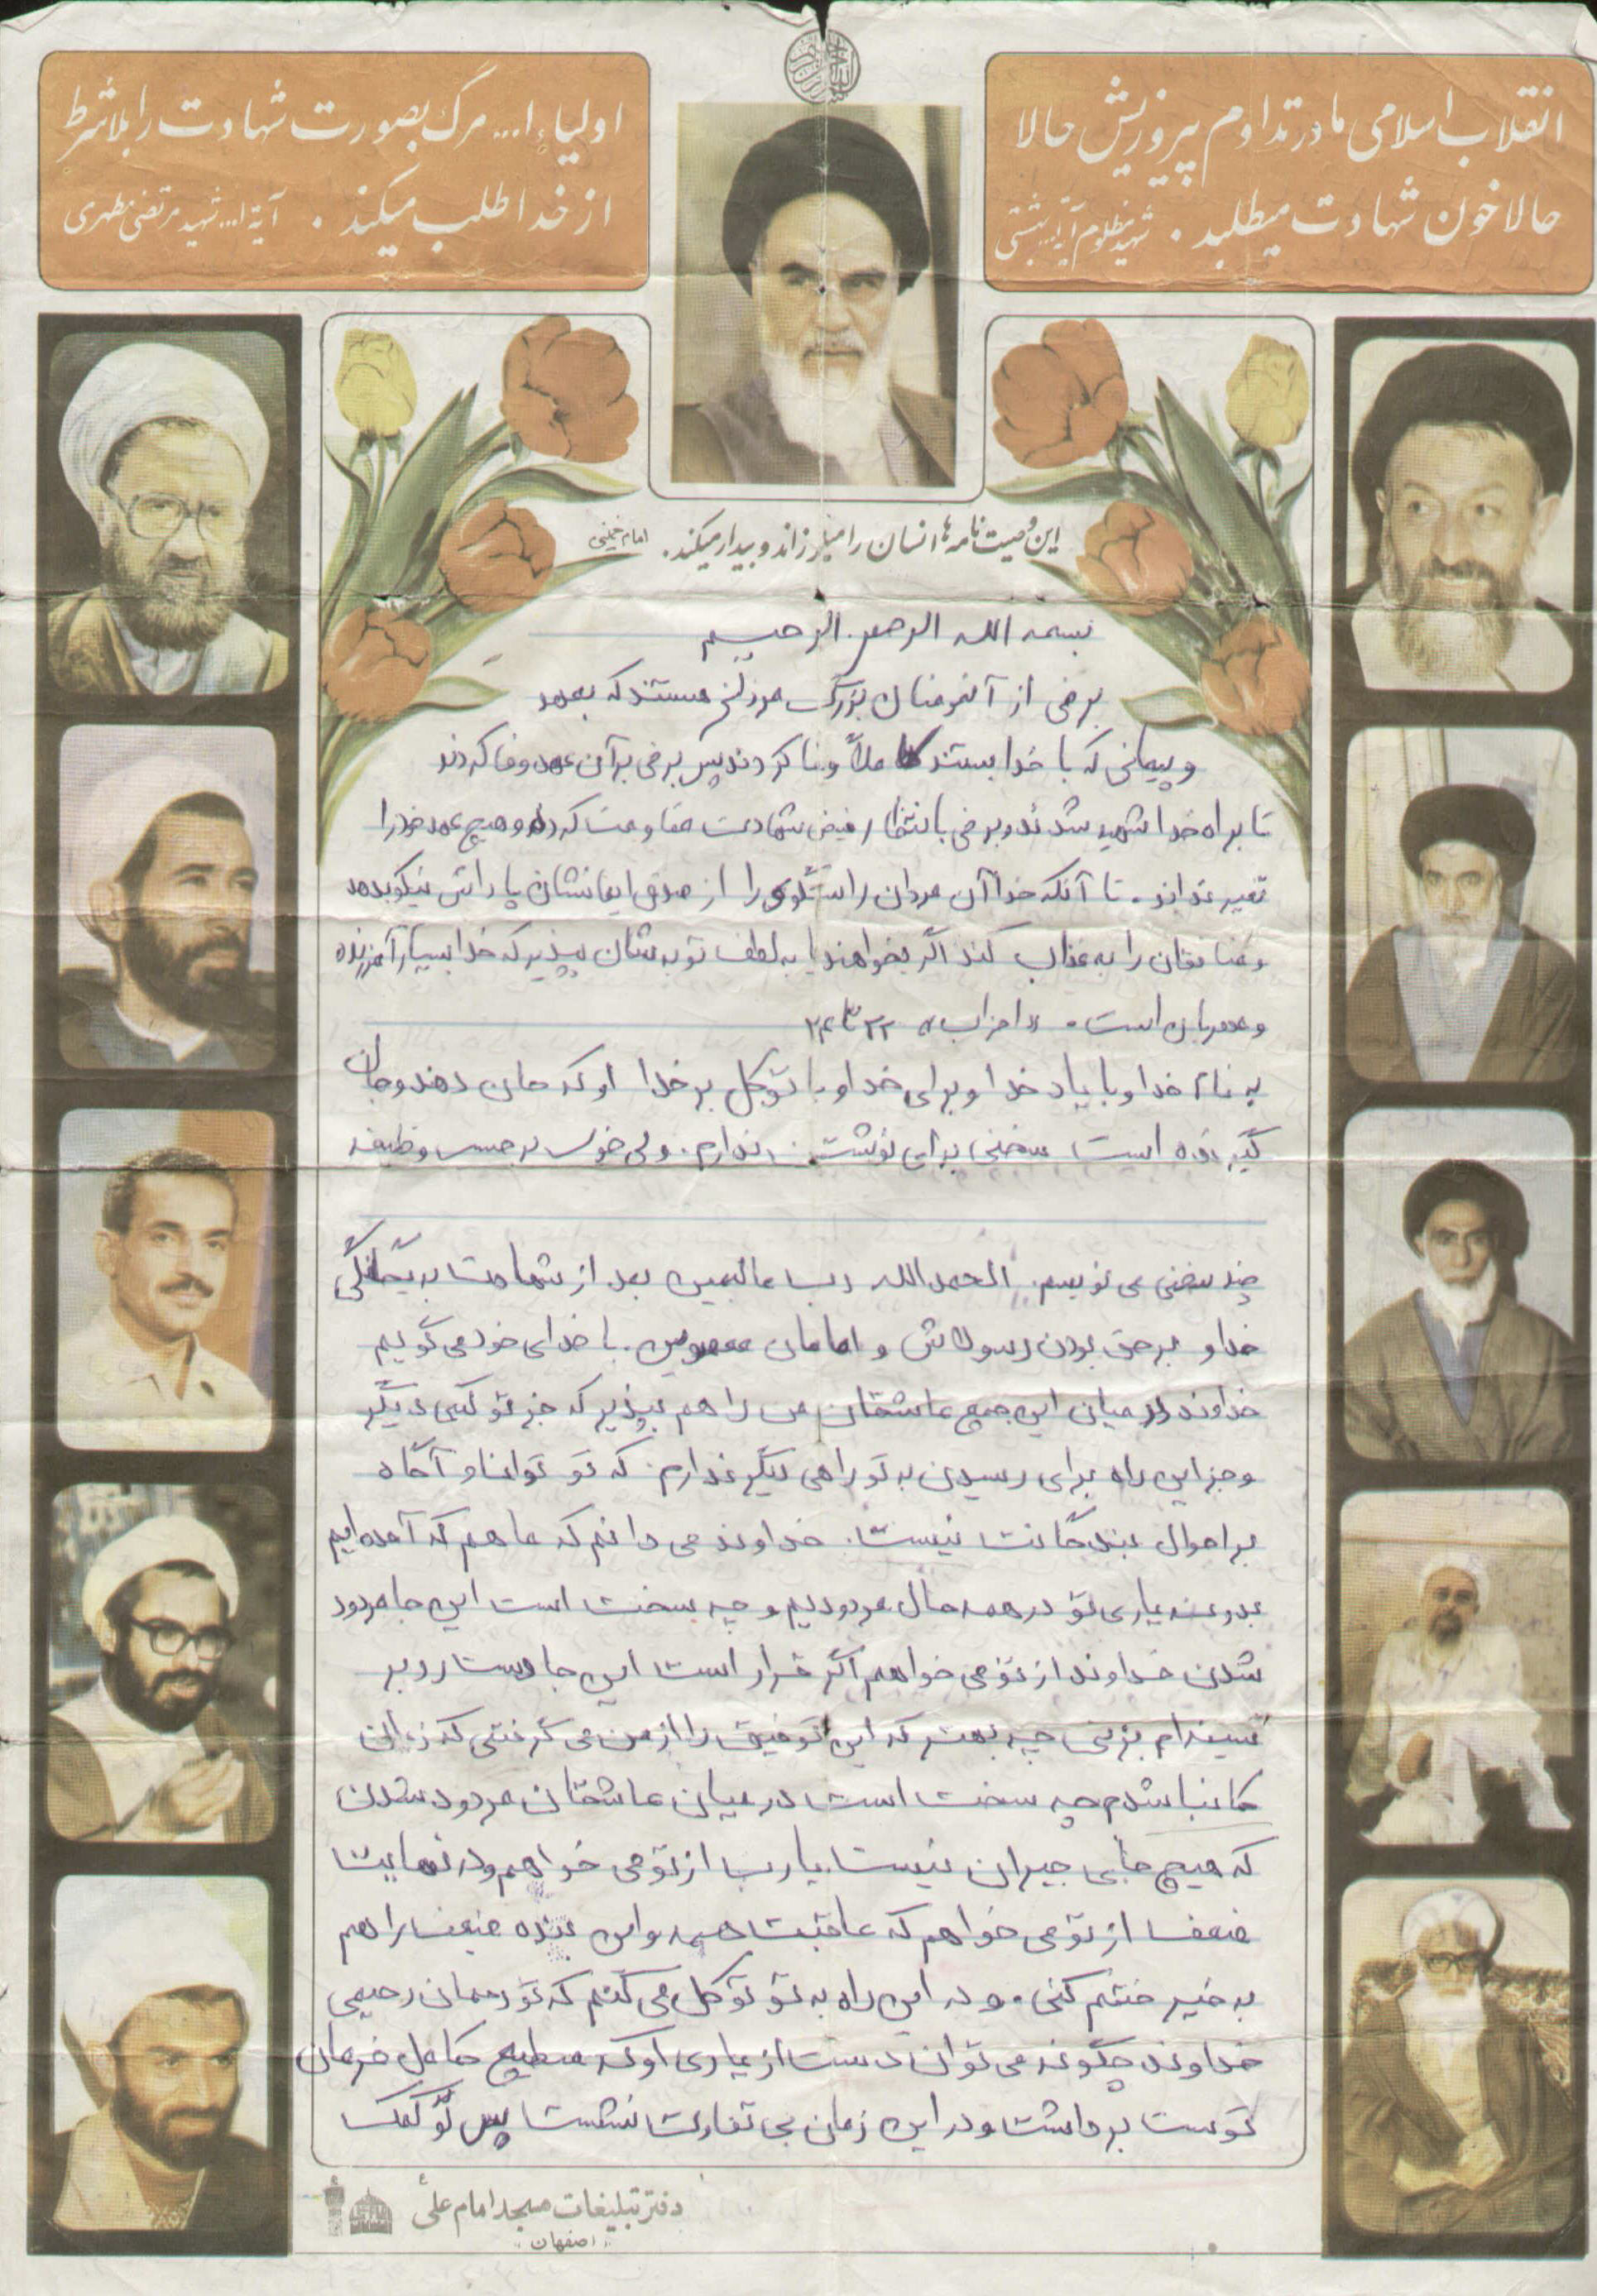 انقلاب اسلامی ما در تداوم پیروزیش حالا
حالا خون شهادت میطلبد . شهید مظلوم آیة... بهشتی
اولیاء ا... مرگ بصورت شهادت را بلاشرط
از خدا طلب میکند . آیة ا... شهید مرتضی مطهری
این وصیت نامه ها انسان را میلرزاند و بیدار میکند . امام خمینی
بسمه الله الرحمن الرحیم
برخی از آن مومنان بزرگ مردانی هستند که بعهد
و پیمانی که با خدا بستند کاملاً وفا کردند پس برخی بر آن عهد وفا کردند
تا براه خدا شهید شدند و برخی بانتظار فیض شهادت مقاومت کرده و هیچ عهد خود را
تغییر نداند . تا آنکه خدا آن مردان راستگوی را از صدق ایمانشان پاداش نیکو بدهد
و منافقان را به عذاب کند اگر بخواهند یا به لطف توبه شان بپذیرد که خدا بسیار آمرزنده
و مهربان است . «احزاب» ۲۳ تا ۲۴
به نام خدا و با یاد خدا و برای خدا و با توکل بر خدا او که جان دهنده و جان
گیرنده است سخنی برای نوشتن ندارم . ولی خوب بر حسب وظیفه
چند سخنی می نویسم . الحمد الله رب عالمین بعد از شهادت به یگانگی
خدا و بر حق بودن رسولانش و امامان معصومین . با خدای خود می گویم
خداوند در میان این جمع عاشقان من را هم بپذیر که جز تو کسی دیگر
و جز این راه برای رسیدن به تو راهی دیگر ندارم . که تو توانا و آگاه
بر احوال بندگانت نیست . خداوند می دانم که ما هم که آمده ایم
بدون یاری تو در همه حال مردودیم و چه سخت است این جا مردود
شدن خداوند از تو می خواهم اگر قرار است این جا دست رد بر
سینه ام بزنی چه بهتر که این توفیق را از من می گرفتی که
شدم چه سخت است در میان عاشقان مردود شدن
که هیچ جای جبران نیست یا رب از تو می خواهم و در نهایت
ضعف از تو می خواهم که عاقبت همه و این بنده ضعیف را هم
به خیر ختم کنی . و در این راه به تو توکل می کنم که تو رحمان رحیمی
خداوند چگونه می توان دست از یاری او که مطیع کامل فرمان
توست برداشت و در این زمان بی تفاوت نشست پس تو کمک
دفتر تبلیغات مسجد امام علی
اصفهان